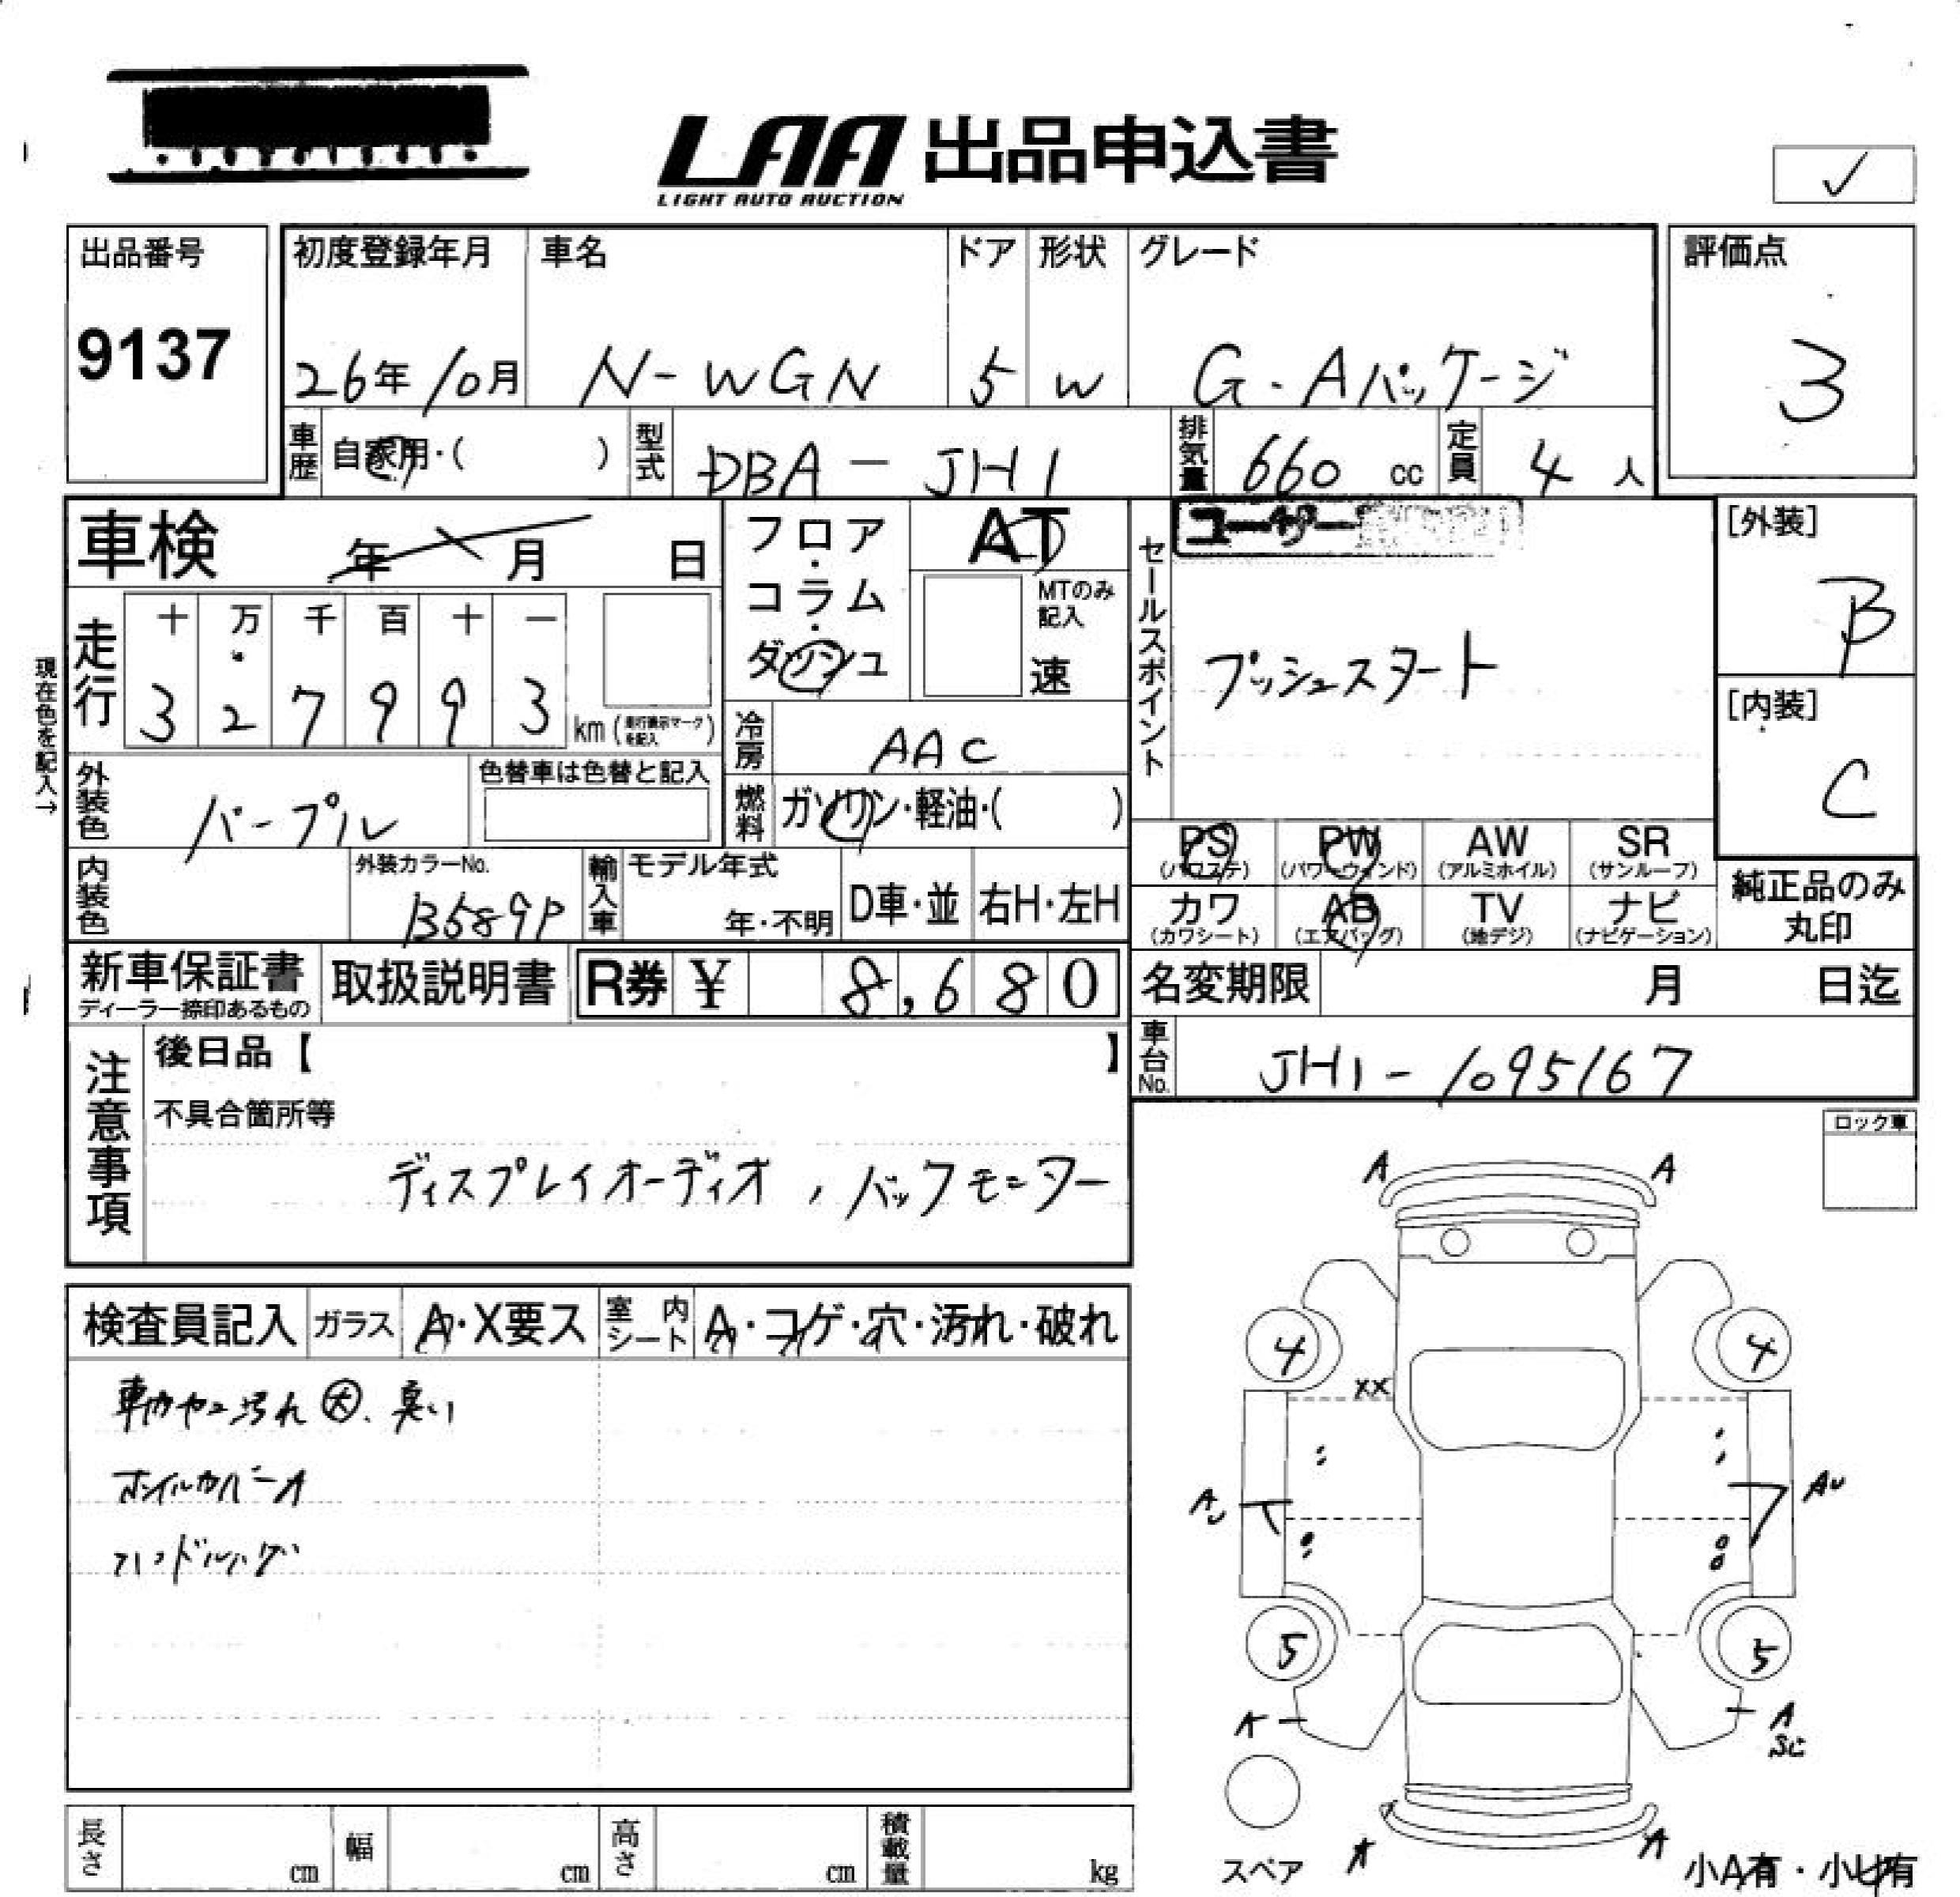 LAA 出品申込書
LIGHT AUTO AUCTION
✓
出品番号
9137
初度登録年月 車名 ドア 形状 グレード
26年10月 N-WGN 5 W G・Aパッケージ
評価点
3
車歴 自家用・( ) 型式 DBA-JH1 排気量 660 cc 定員 4 人
車検 年 月 日
フロア・コラム・ダッシュ
AT
MTのみ記入
速
セールスポイント
ユーザー
プッシュスタート
[外装]
B
[内装]
C
現在色を記入→
走行
十 万 千 百 十 一
3 2 7 9 9 3 km (走行表示マークを記入)
冷房 AAC
外装色 パープル
色替車は色替と記入
燃料 ガソリン・軽油・( )
内装色
外装カラーNo.
B589P
輸入車 モデル年式
年・不明
D車・並 右H・左H
PS (パワステ) PW (パワーウィンド) AW (アルミホイル) SR (サンルーフ)
カワ (カワシート) AB (エアバッグ) TV (地デジ) ナビ (ナビゲーション)
純正品のみ丸印
新車保証書
ディーラー捺印あるもの
取扱説明書
R券 ¥ 8,680
名変期限 月 日迄
車台No. JH1-1095167
注意事項
後日品【 】
不具合箇所等
ディスプレイオーディオ, バックモニター
ロック車
検査員記入 ガラス A・X要ス 室内シート A・コゲ・穴・汚れ・破れ
車内ヤニ汚れ大、臭い
ホイルカバーA
ハンドルハゲ
A A
4 4
XX
AU AU
5 5
A A
SC
スペア
A A
小A有・小U有
長さ cm 幅 cm 高さ cm 積載量 kg